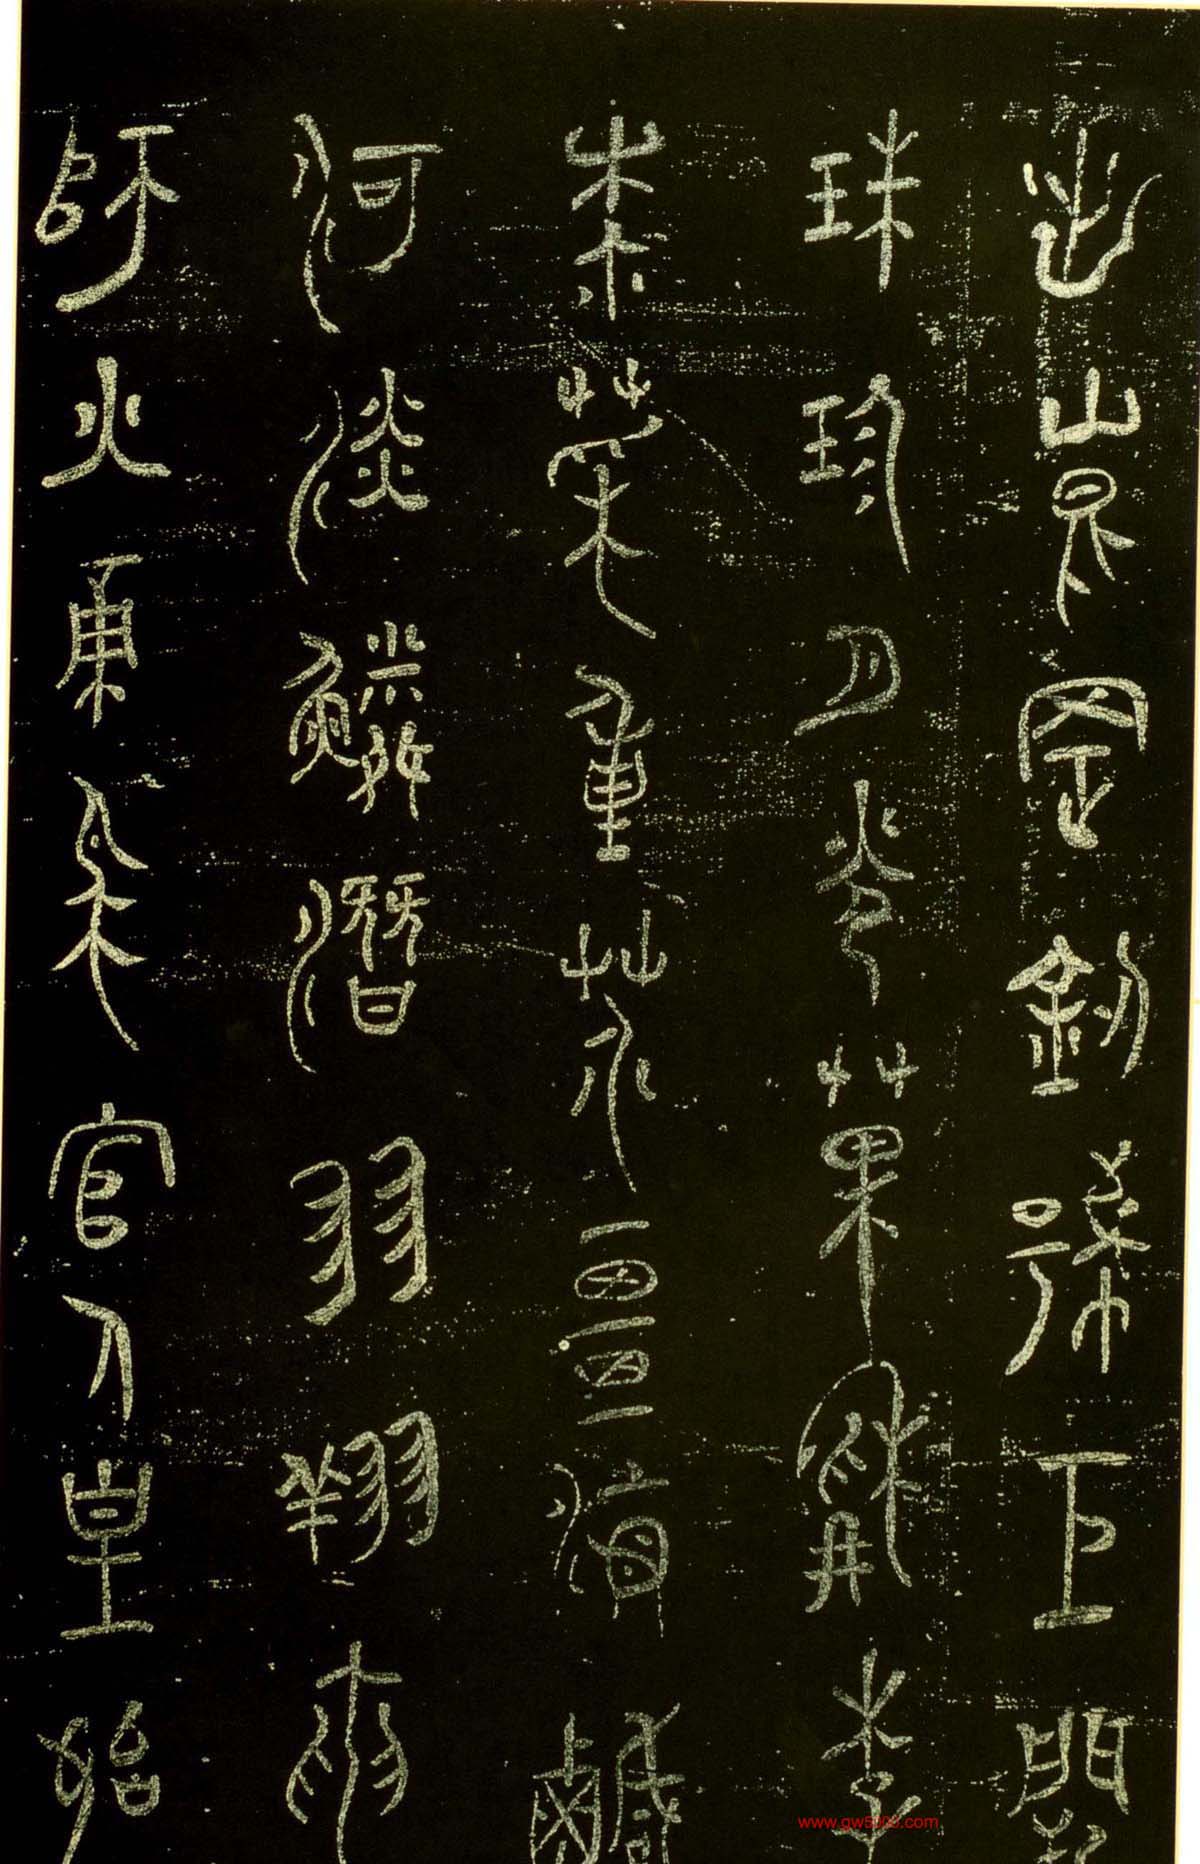 出崑岡劍號巨闕
珠珍月光菓稱李
柰菜重芥畺海鹹
河淡鱗潛羽翔龍
師火帝鳥官人皇始
www.gw5000.com